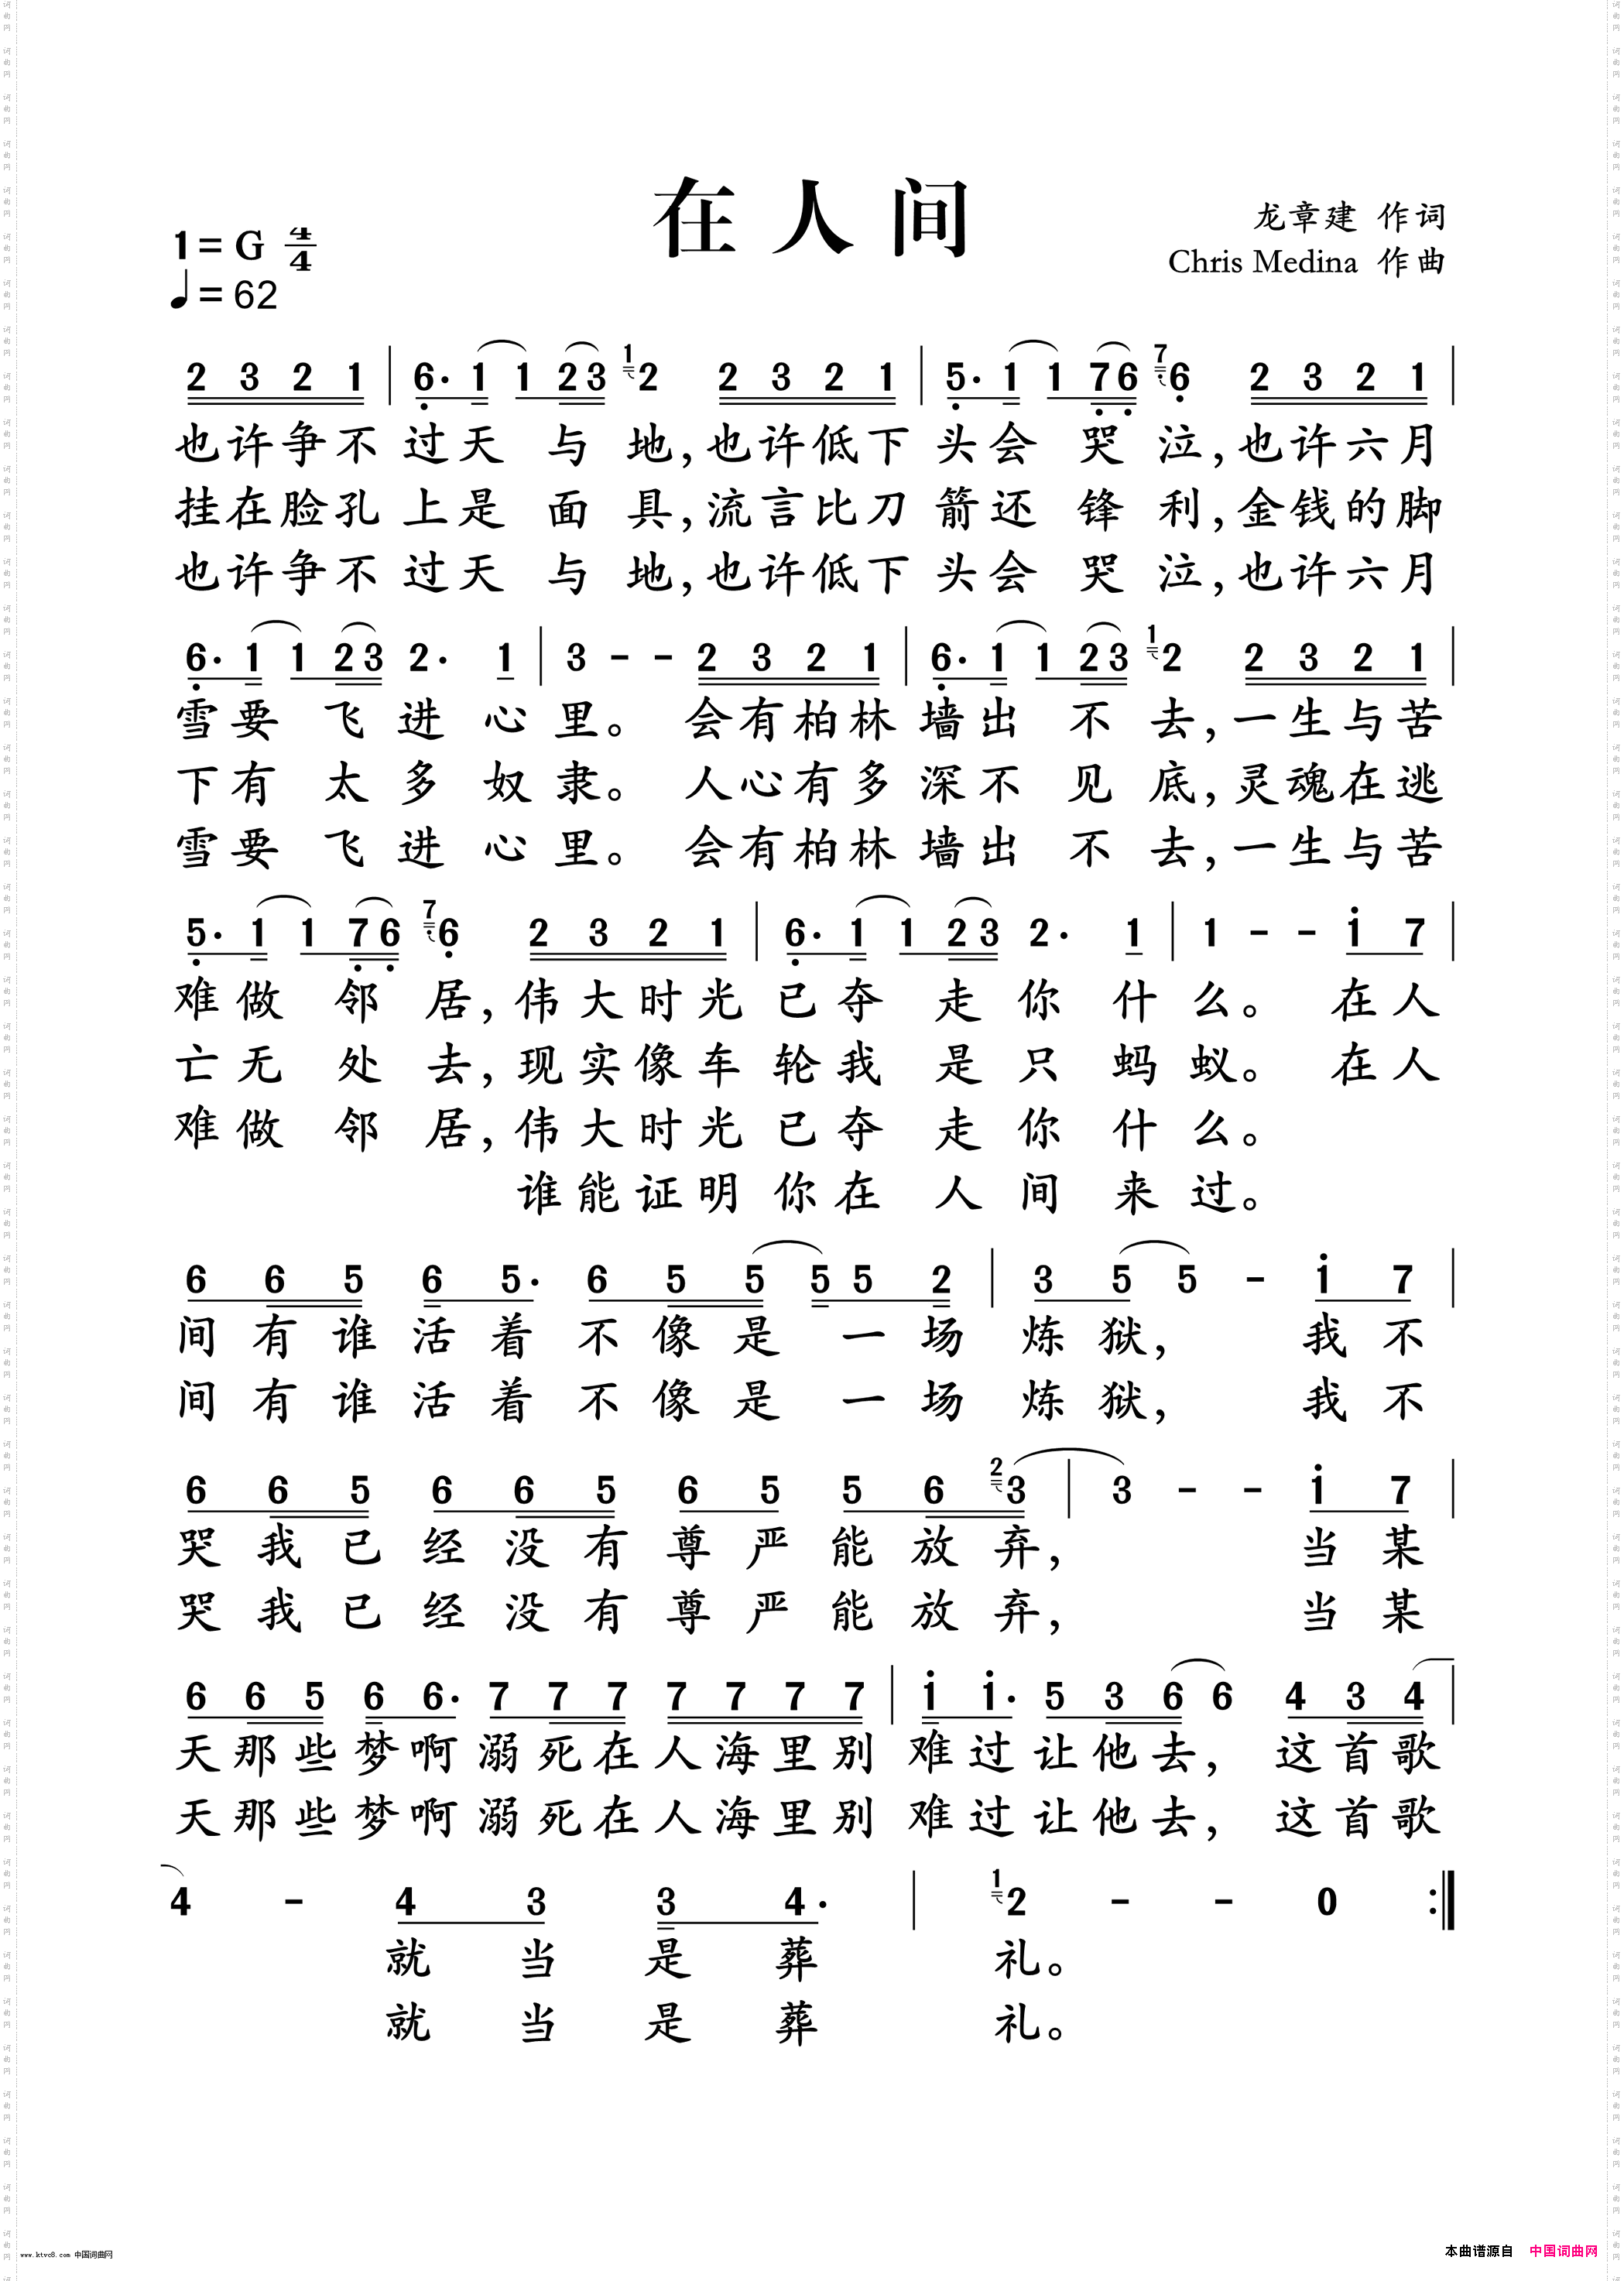 在人间
龙章建 作词
Chris Medina 作曲
1=G 4/4
♩=62
2 3 2 1 | 6· 1 1 2 3 1 2 2 3 2 1 | 5· 1 1 7 6 7 6 2 3 2 1 |
也许争不过天与地,也许低下头会哭泣,也许六月
挂在脸孔上是面具,流言比刀箭还锋利,金钱的脚
也许争不过天与地,也许低下头会哭泣,也许六月
6· 1 1 2 3 2· 1 | 3 - - 2 3 2 1 | 6· 1 1 2 3 1 2 2 3 2 1 |
雪要飞进心里。会有柏林墙出不去,一生与苦
下有太多奴隶。人心有多深不见底,灵魂在逃
雪要飞进心里。会有柏林墙出不去,一生与苦
5· 1 1 7 6 7 6 2 3 2 1 | 6· 1 1 2 3 2· 1 | 1 - - 1 7 |
难做邻居,伟大时光已夺走你什么。在人
亡无处去,现实像车轮我是只蚂蚁。在人
难做邻居,伟大时光已夺走你什么。
谁能证明你在人间来过。
6 6 5 6 5· 6 5 5 5 5 2 | 3 5 5 - 1 7 |
间有谁活着不像是一场炼狱,我不
间有谁活着不像是一场炼狱,我不
6 6 5 6 6 5 6 5 5 6 2 3 | 3 - - 1 7 |
哭我已经没有尊严能放弃,当某
哭我已经没有尊严能放弃,当某
6 6 5 6 6· 7 7 7 7 7 7 7 | 1 1· 5 3 6 6 4 3 4 |
天那些梦啊溺死在人海里别难过让他去,这首歌
天那些梦啊溺死在人海里别难过让他去,这首歌
4 - 4 3 3 4· | 1 2 - - 0 :|
就当是葬礼。
就当是葬礼。
www.ktvc8.com 中国词曲网
本曲谱源自 中国词曲网